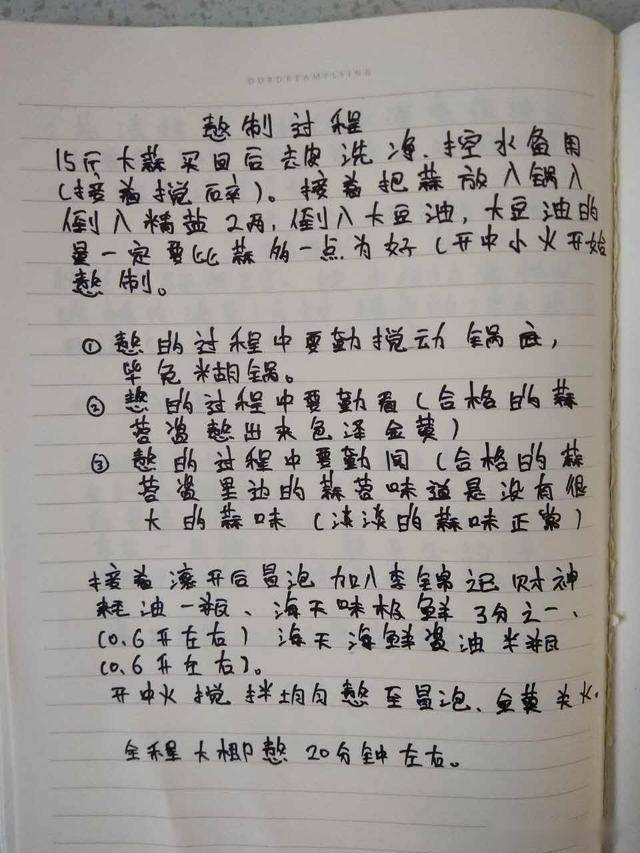 OURDREAMFLYING
熬制过程
15斤大蒜买回后去皮洗净,控水备用
(接着搅碎)。接着把蒜放入锅入
倒入精盐2两,倒入大豆油,大豆油的
量一定要比蒜多一点为好(开中小火开始
熬制。
① 熬的过程中要勤搅动锅底,
毕免糊锅。
② 熬的过程中要勤看(合格的蒜
蓉酱熬出来色泽金黄)
③ 熬的过程中要勤闻(合格的蒜
蓉酱里边的蒜蓉味道是没有很
大的蒜味(淡淡的蒜味正常)
接着滚开后冒泡加入李锦记财神
耗油一瓶、海天味极鲜3分之一、
(0.6升左右)海天海鲜酱油半瓶
(0.6升左右)。
开中火搅拌均匀熬至冒泡、金黄关火.
全程大概熬20分钟左右。